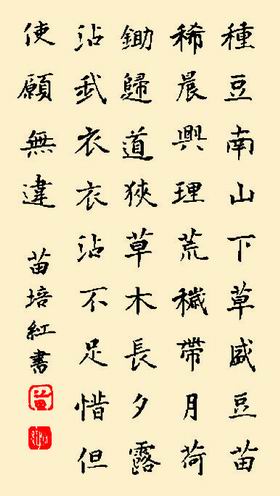 種豆南山下草盛豆苗
稀晨興理荒穢帶月荷
鋤歸道狹草木長夕露
沾我衣衣沾不足惜但
使願無違
苗培紅書